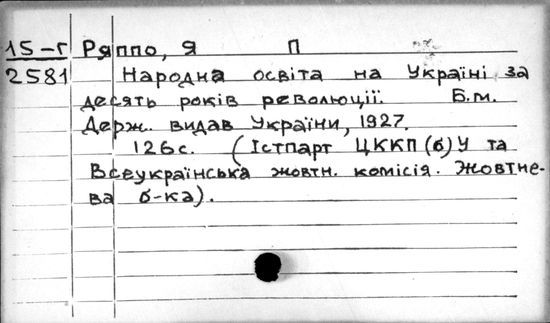 15-г Ряппо, Я П
2581 Народна освіта на Україні за
десять років революції. Б.м.
Держ. видав України, 1927.
126 с. (Істпарт ЦККП(б)У та
Всеукраїнська жовтн. комісія. Жовтне-
ва б-ка).